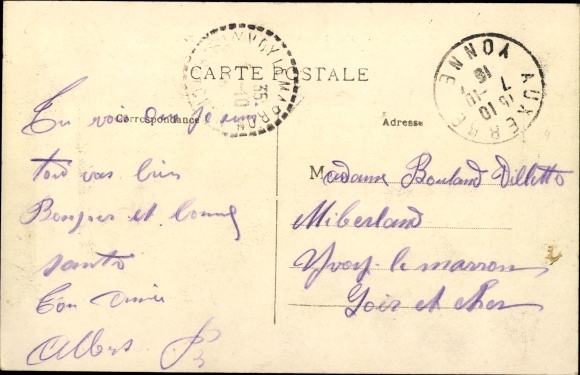 CARTE POSTALE
Correspondance
Adresse
YVOY LE MARRON
35
10
AUXERRE
YONNE
18
7 -10
15
10
tout vas bien
Bonjour et bonne
santé
Ton amie
Albert B
Madame Bouland Villette
Miberland
Yvoy-le marron
Loir et cher